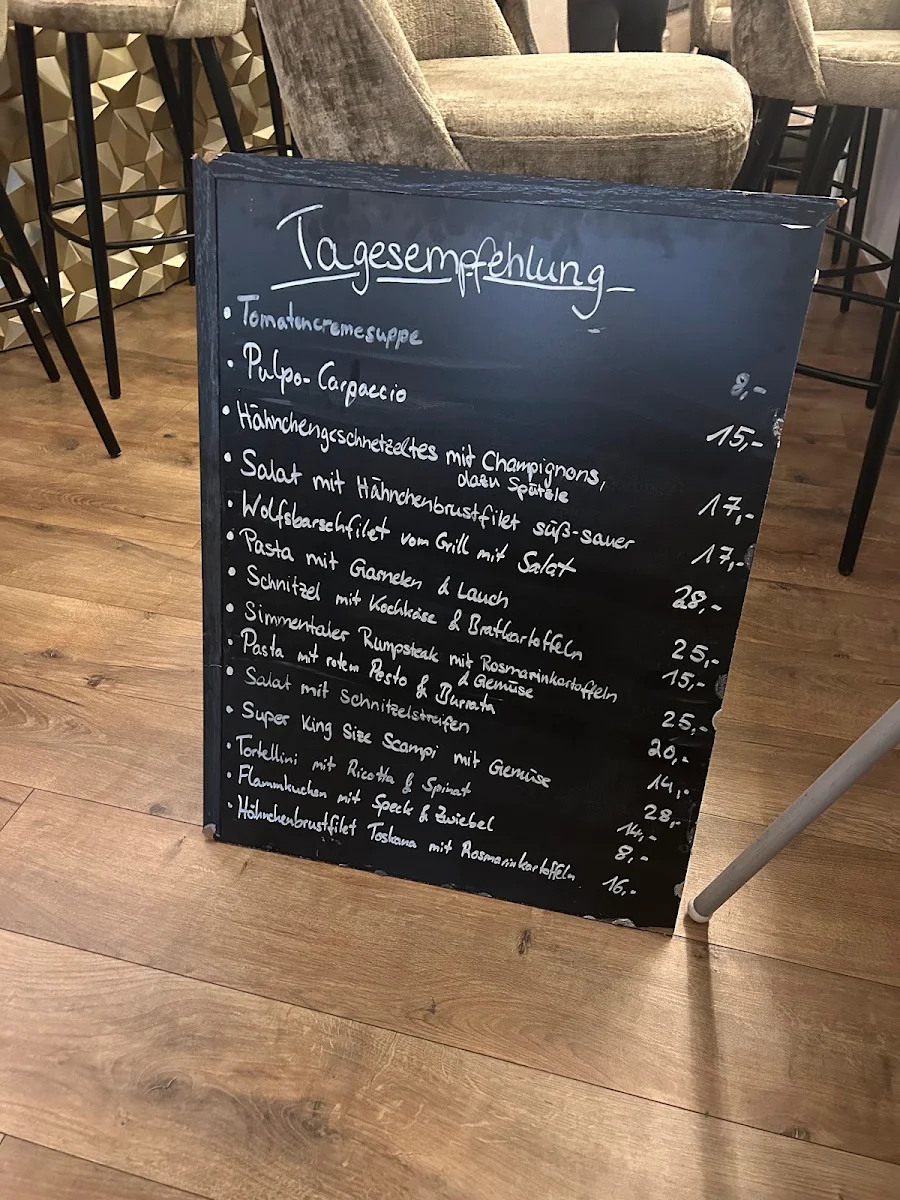 Tagesempfehlung
• Tomatencremesuppe 8,-
• Pulpo-Carpaccio 15,-
• Hähnchengeschnetzeltes mit Champignons, 17,-
dazu Spätzle
• Salat mit Hähnchenbrustfilet süß-sauer 17,-
• Wolfsbarschfilet vom Grill mit Salat 28,-
• Pasta mit Garnelen & Lauch 25,-
• Schnitzel mit Kochkäse & Bratkartoffeln 15,-
• Simmentaler Rumpsteak mit Rosmarinkartoffeln 25,-
& Gemüse
• Pasta mit rotem Pesto & Burrata 20,-
• Salat mit Schnitzelstreifen 14,-
• Super King Size Scampi mit Gemüse 28,-
• Tortellini mit Ricotta & Spinat 14,-
• Flammkuchen mit Speck & Zwiebel 8,-
• Hähnchenbrustfilet Toskana mit Rosmarinkartoffeln 16,-